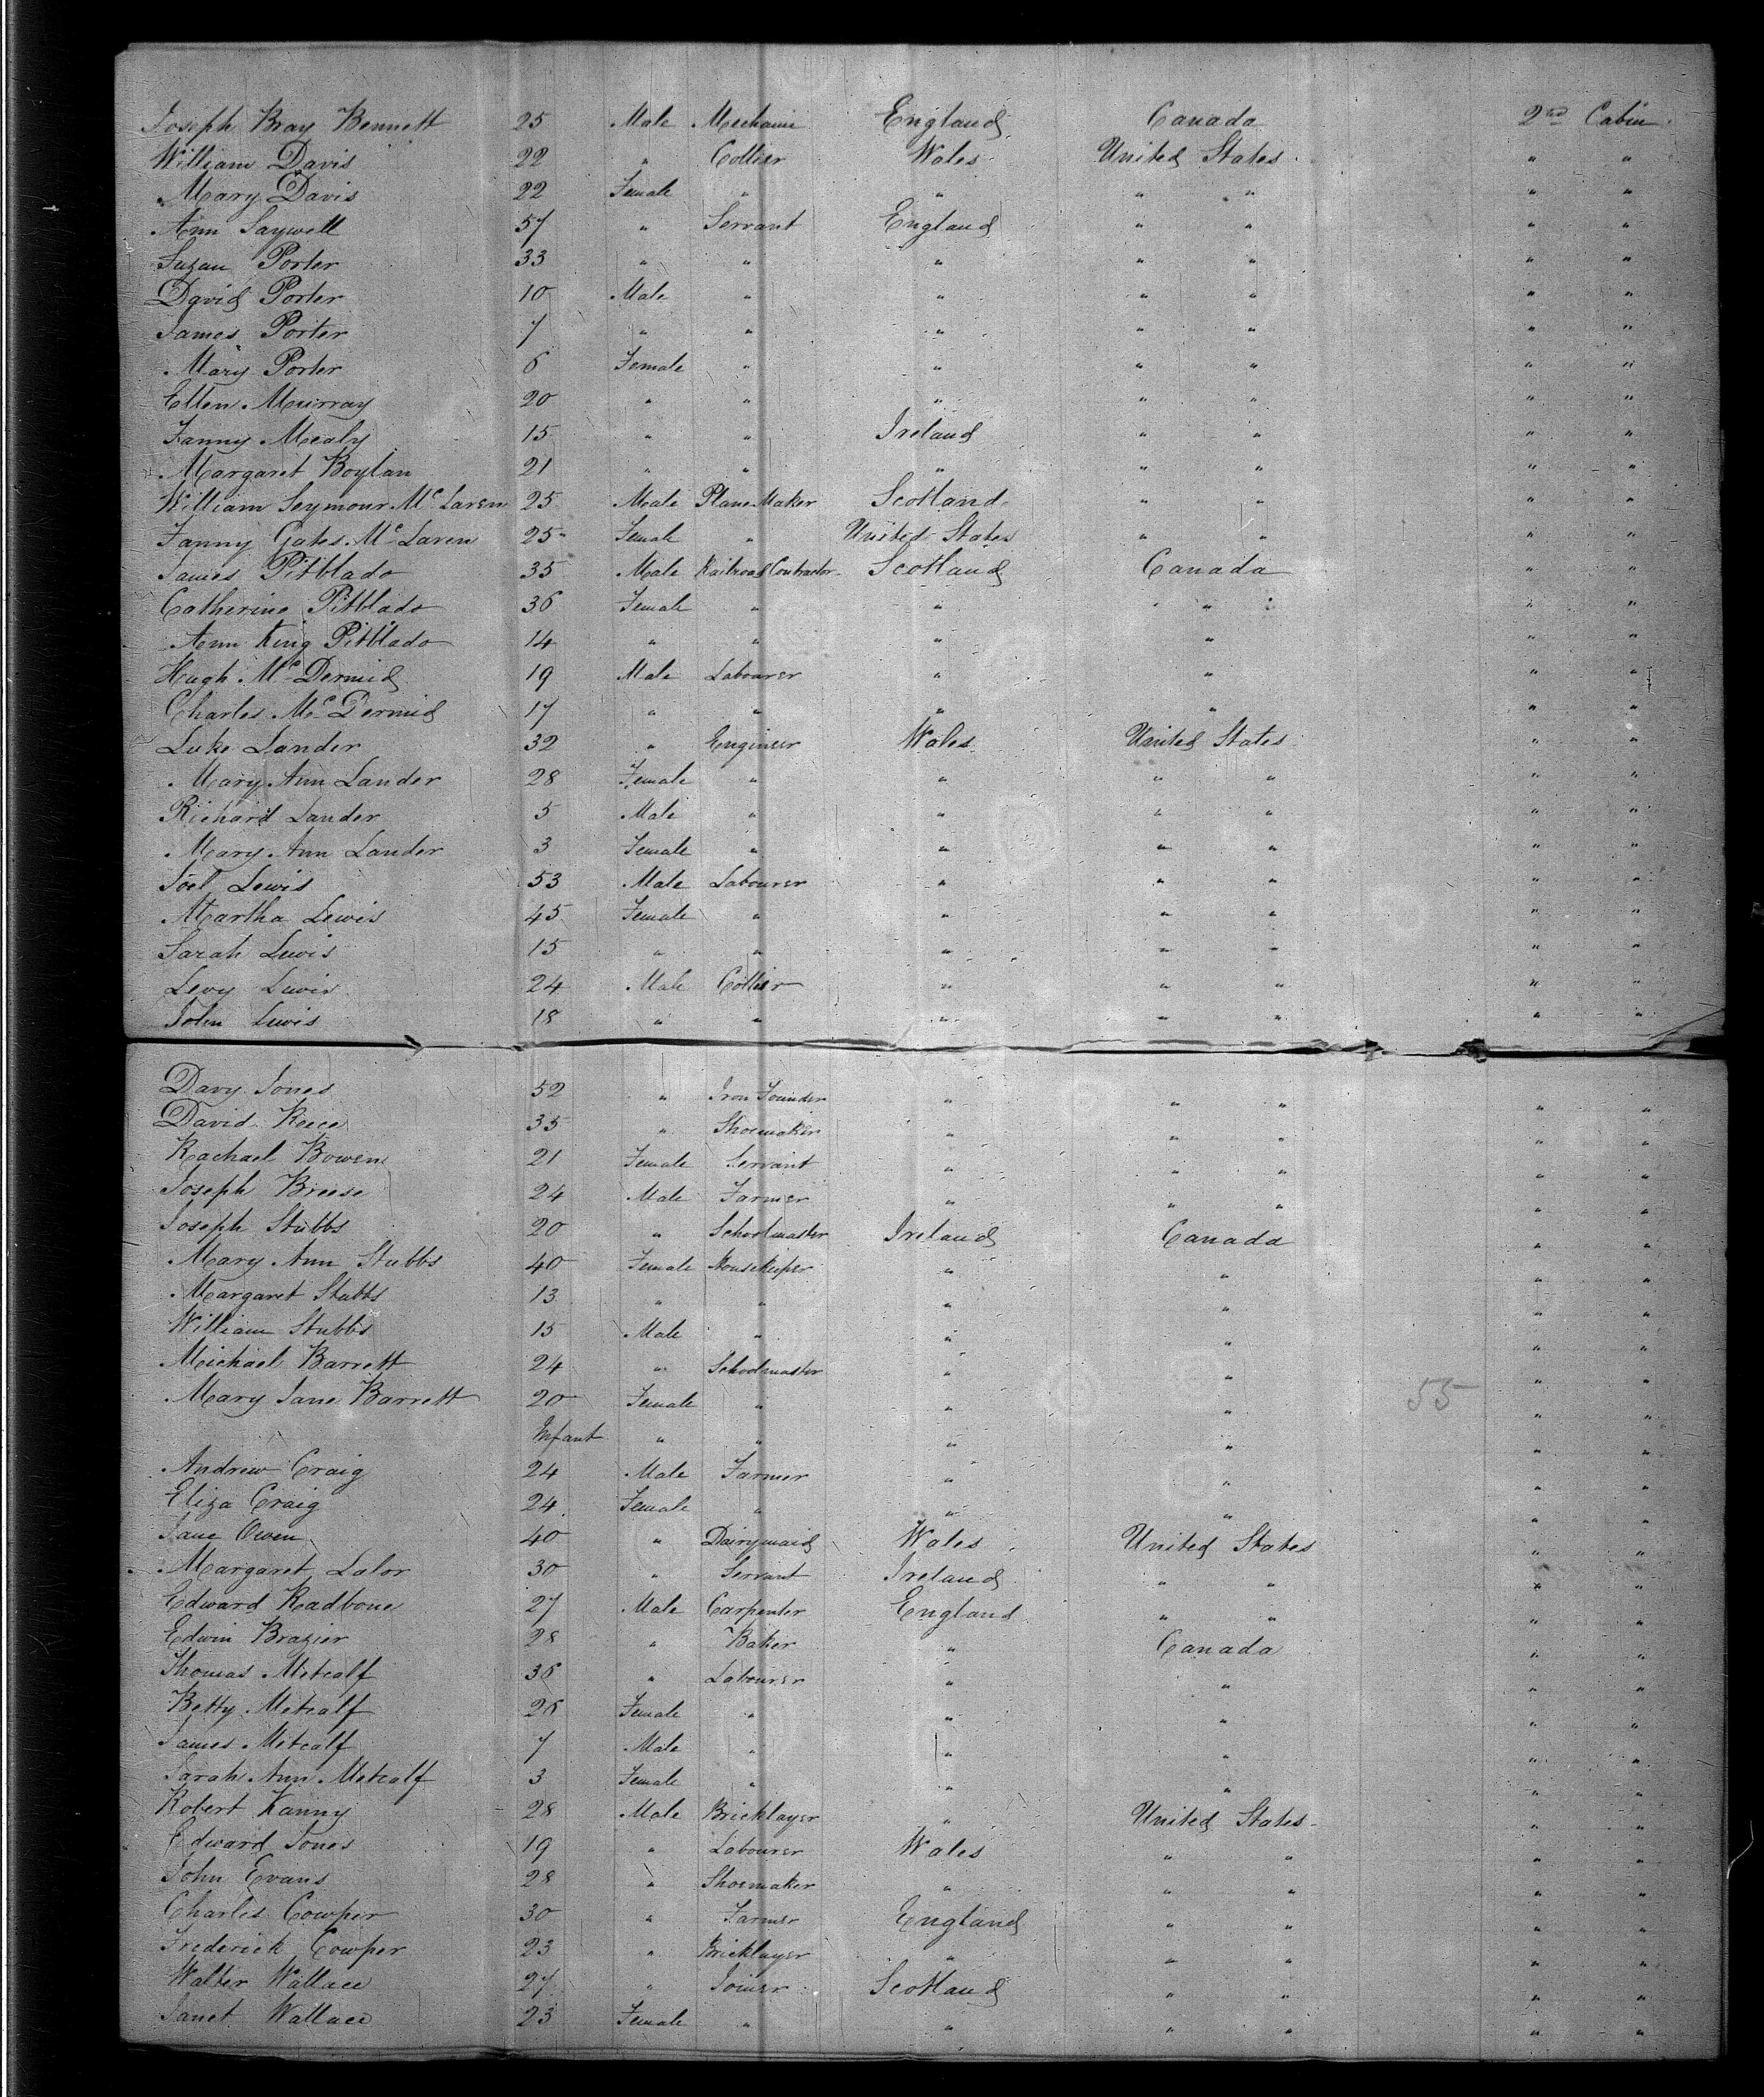 Joseph Bray Bennett 25 Male Mechanic England Canada 2nd Cabin
William Davis 22 " Collier Wales United States " "
Mary Davis 22 Female " " " " " "
Ann Saywell 57 " Servant England " " " "
Susan Porter 33 " " " " " " "
David Porter 10 Male " " " " " "
James Porter 7 " " " " " " "
Mary Porter 6 Female " " " " " "
Ellen Murray 20 " " " " " " "
Fanny Mealy 15 " " Ireland " " " "
Margaret Boylan 21 " " " " " " "
William Seymour McLaren 25 Male Plane Maker Scotland " " " "
Fanny Gates McLaren 25 Female " United States " " " "
James Pitblado 35 Male Railroad Contractor Scotland Canada " "
Catherine Pitblado 36 Female " " " " "
Ann King Pitblado 14 " " " " " "
Hugh McDermid 19 Male Labourer " " " "
Charles McDermid 17 " " " " " "
Luke Lander 32 " Engineer Wales United States " "
Mary Ann Lander 28 Female " " " " " "
Richard Lander 5 Male " " " " " "
Mary Ann Lander 3 Female " " " " " "
Joel Lewis 53 Male Labourer " " " " "
Martha Lewis 45 Female " " " " " "
Sarah Lewis 15 " " " " " " "
Levy Lewis 24 Male Collier " " " " "
John Lewis 18 " " " " " " "
Davy Jones 52 " Iron Founder " " " " "
David Reece 35 " Shoemaker " " " " "
Rachael Bowen 21 Female Servant " " " " "
Joseph Breese 24 Male Farmer " " " " "
Joseph Stubbs 20 " Schoolmaster Ireland Canada " "
Mary Ann Stubbs 40 Female Housekeeper " " " "
Margaret Stubbs 13 " " " " " "
William Stubbs 15 Male " " " " "
Michael Barrett 24 " Schoolmaster " " " "
Mary Jane Barrett 20 Female " " " 55 " "
Infant " " " " " "
Andrew Craig 24 Male Farmer " " " "
Eliza Craig 24 Female " " " " "
Jane Owen 40 " Dairymaid Wales United States " "
Margaret Lalor 30 " Servant Ireland " " " "
Edward Radbone 27 Male Carpenter England " " " "
Edwin Brazier 28 " Baker " Canada " "
Thomas Metcalf 36 " Labourer " " " "
Betty Metcalf 26 Female " " " " "
James Metcalf 7 Male " " " " "
Sarah Ann Metcalf 3 Female " " " " "
Robert Kanny 28 Male Bricklayer " United States " "
Edward Jones 19 " Labourer Wales " " " "
John Evans 28 " Shoemaker " " " " "
Charles Cowper 30 " Farmer England " " " "
Frederick Cowper 23 " Bricklayer " " " " "
Walter Wallace 27 " Joiner Scotland " " " "
Janet Wallace 23 Female " " " " " "